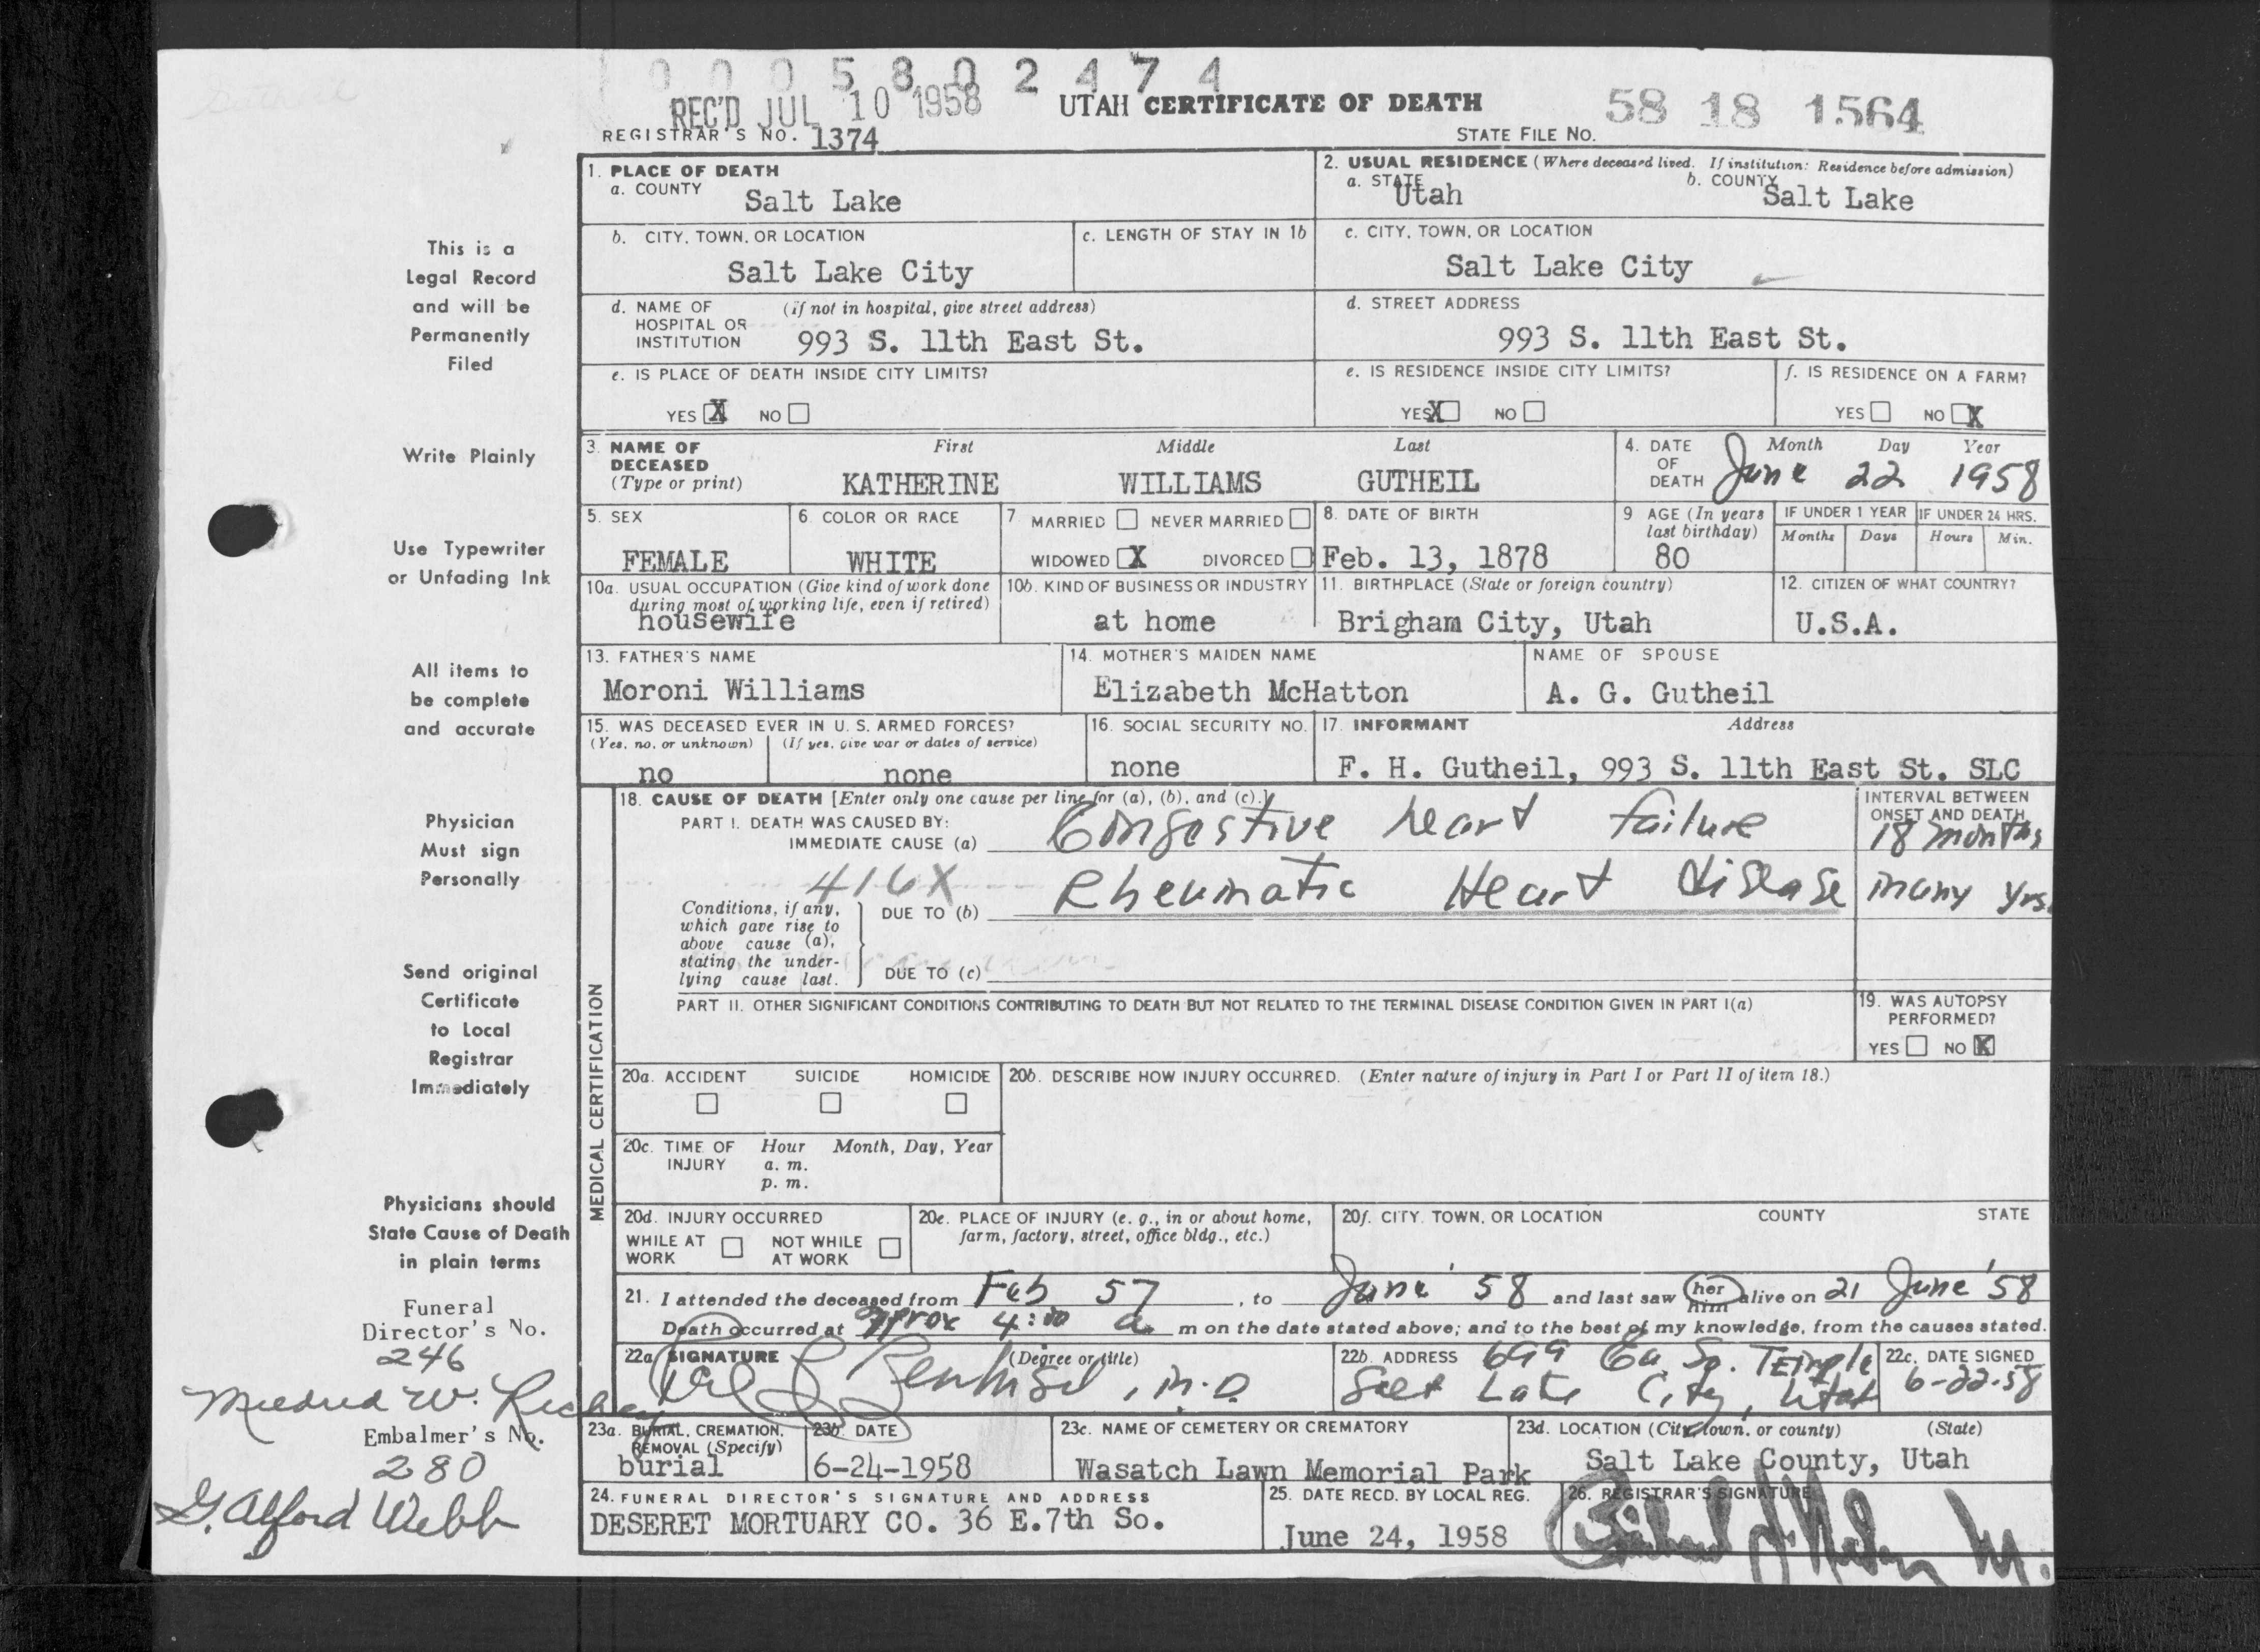 0 0 0 5 8 0 2 4 7 4
REC'D JUL 10 1958
UTAH CERTIFICATE OF DEATH
58 18 1564
REGISTRAR'S NO. 1374
STATE FILE NO.
This is a
Legal Record
and will be
Permanently
Filed
Write Plainly
Use Typewriter
or Unfading Ink
All items to
be complete
and accurate
Physician
Must sign
Personally
Send original
Certificate
to Local
Registrar
Immediately
Physicians should
State Cause of Death
in plain terms
Funeral
Director's No.
246
Mildred W.
Embalmer's No.
280
G. Alford Webb
1. PLACE OF DEATH
a. COUNTY
Salt Lake
2. USUAL RESIDENCE (Where deceased lived. If institution: Residence before admission)
a. STATE Utah b. COUNTY Salt Lake
b. CITY, TOWN, OR LOCATION
Salt Lake City
c. LENGTH OF STAY IN 1b
c. CITY, TOWN, OR LOCATION
Salt Lake City
d. NAME OF (If not in hospital, give street address)
HOSPITAL OR
INSTITUTION 993 S. 11th East St.
d. STREET ADDRESS
993 S. 11th East St.
e. IS PLACE OF DEATH INSIDE CITY LIMITS?
YES X NO
e. IS RESIDENCE INSIDE CITY LIMITS?
YES X NO
f. IS RESIDENCE ON A FARM?
YES NO X
3. NAME OF DECEASED (Type or print)
First Middle Last
KATHERINE WILLIAMS GUTHEIL
4. DATE OF DEATH
Month Day Year
June 22 1958
5. SEX
FEMALE
6. COLOR OR RACE
WHITE
7. MARRIED NEVER MARRIED
WIDOWED X DIVORCED
8. DATE OF BIRTH
Feb. 13, 1878
9 AGE (In years last birthday)
80
IF UNDER 1 YEAR
Months Days
IF UNDER 24 HRS.
Hours Min.
10a. USUAL OCCUPATION (Give kind of work done
during most of working life, even if retired)
housewife
10b. KIND OF BUSINESS OR INDUSTRY
at home
11. BIRTHPLACE (State or foreign country)
Brigham City, Utah
12. CITIZEN OF WHAT COUNTRY?
U.S.A.
13. FATHER'S NAME
Moroni Williams
14. MOTHER'S MAIDEN NAME
Elizabeth McHatton
NAME OF SPOUSE
A. G. Gutheil
15. WAS DECEASED EVER IN U. S. ARMED FORCES?
(Yes, no, or unknown) (If yes, give war or dates of service)
no none
16. SOCIAL SECURITY NO.
none
17. INFORMANT Address
F. H. Gutheil, 993 S. 11th East St. SLC
MEDICAL CERTIFICATION
18. CAUSE OF DEATH [Enter only one cause per line for (a), (b), and (c).]
PART I. DEATH WAS CAUSED BY:
IMMEDIATE CAUSE (a) Congestive heart failure
INTERVAL BETWEEN
ONSET AND DEATH
18 months
416X
Conditions, if any,
which gave rise to
above cause (a),
stating the under-
lying cause last.
DUE TO (b) Rheumatic Heart disease
many yrs.
DUE TO (c)
PART II. OTHER SIGNIFICANT CONDITIONS CONTRIBUTING TO DEATH BUT NOT RELATED TO THE TERMINAL DISEASE CONDITION GIVEN IN PART I(a)
19. WAS AUTOPSY
PERFORMED?
YES NO X
20a. ACCIDENT SUICIDE HOMICIDE
20b. DESCRIBE HOW INJURY OCCURRED. (Enter nature of injury in Part I or Part II of item 18.)
20c. TIME OF INJURY Hour Month, Day, Year
a. m.
p. m.
20d. INJURY OCCURRED
WHILE AT WORK NOT WHILE AT WORK
20e. PLACE OF INJURY (e. g., in or about home,
farm, factory, street, office bldg., etc.)
20f. CITY, TOWN, OR LOCATION COUNTY STATE
21. I attended the deceased from Feb 57, to June '58 and last saw her him alive on 21 June '58
Death occurred at approx 4:00 a m on the date stated above; and to the best of my knowledge, from the causes stated.
22a. SIGNATURE (Degree or title)
M.D.
22b. ADDRESS 699 Ea So. Temple
Salt Lake City, Utah
22c. DATE SIGNED
6-22-58
23a. BURIAL, CREMATION,
REMOVAL (Specify)
burial
23b. DATE
6-24-1958
23c. NAME OF CEMETERY OR CREMATORY
Wasatch Lawn Memorial Park
23d. LOCATION (City, town, or county) (State)
Salt Lake County, Utah
24. FUNERAL DIRECTOR'S SIGNATURE AND ADDRESS
DESERET MORTUARY CO. 36 E.7th So.
25. DATE RECD. BY LOCAL REG.
June 24, 1958
26. REGISTRAR'S SIGNATURE